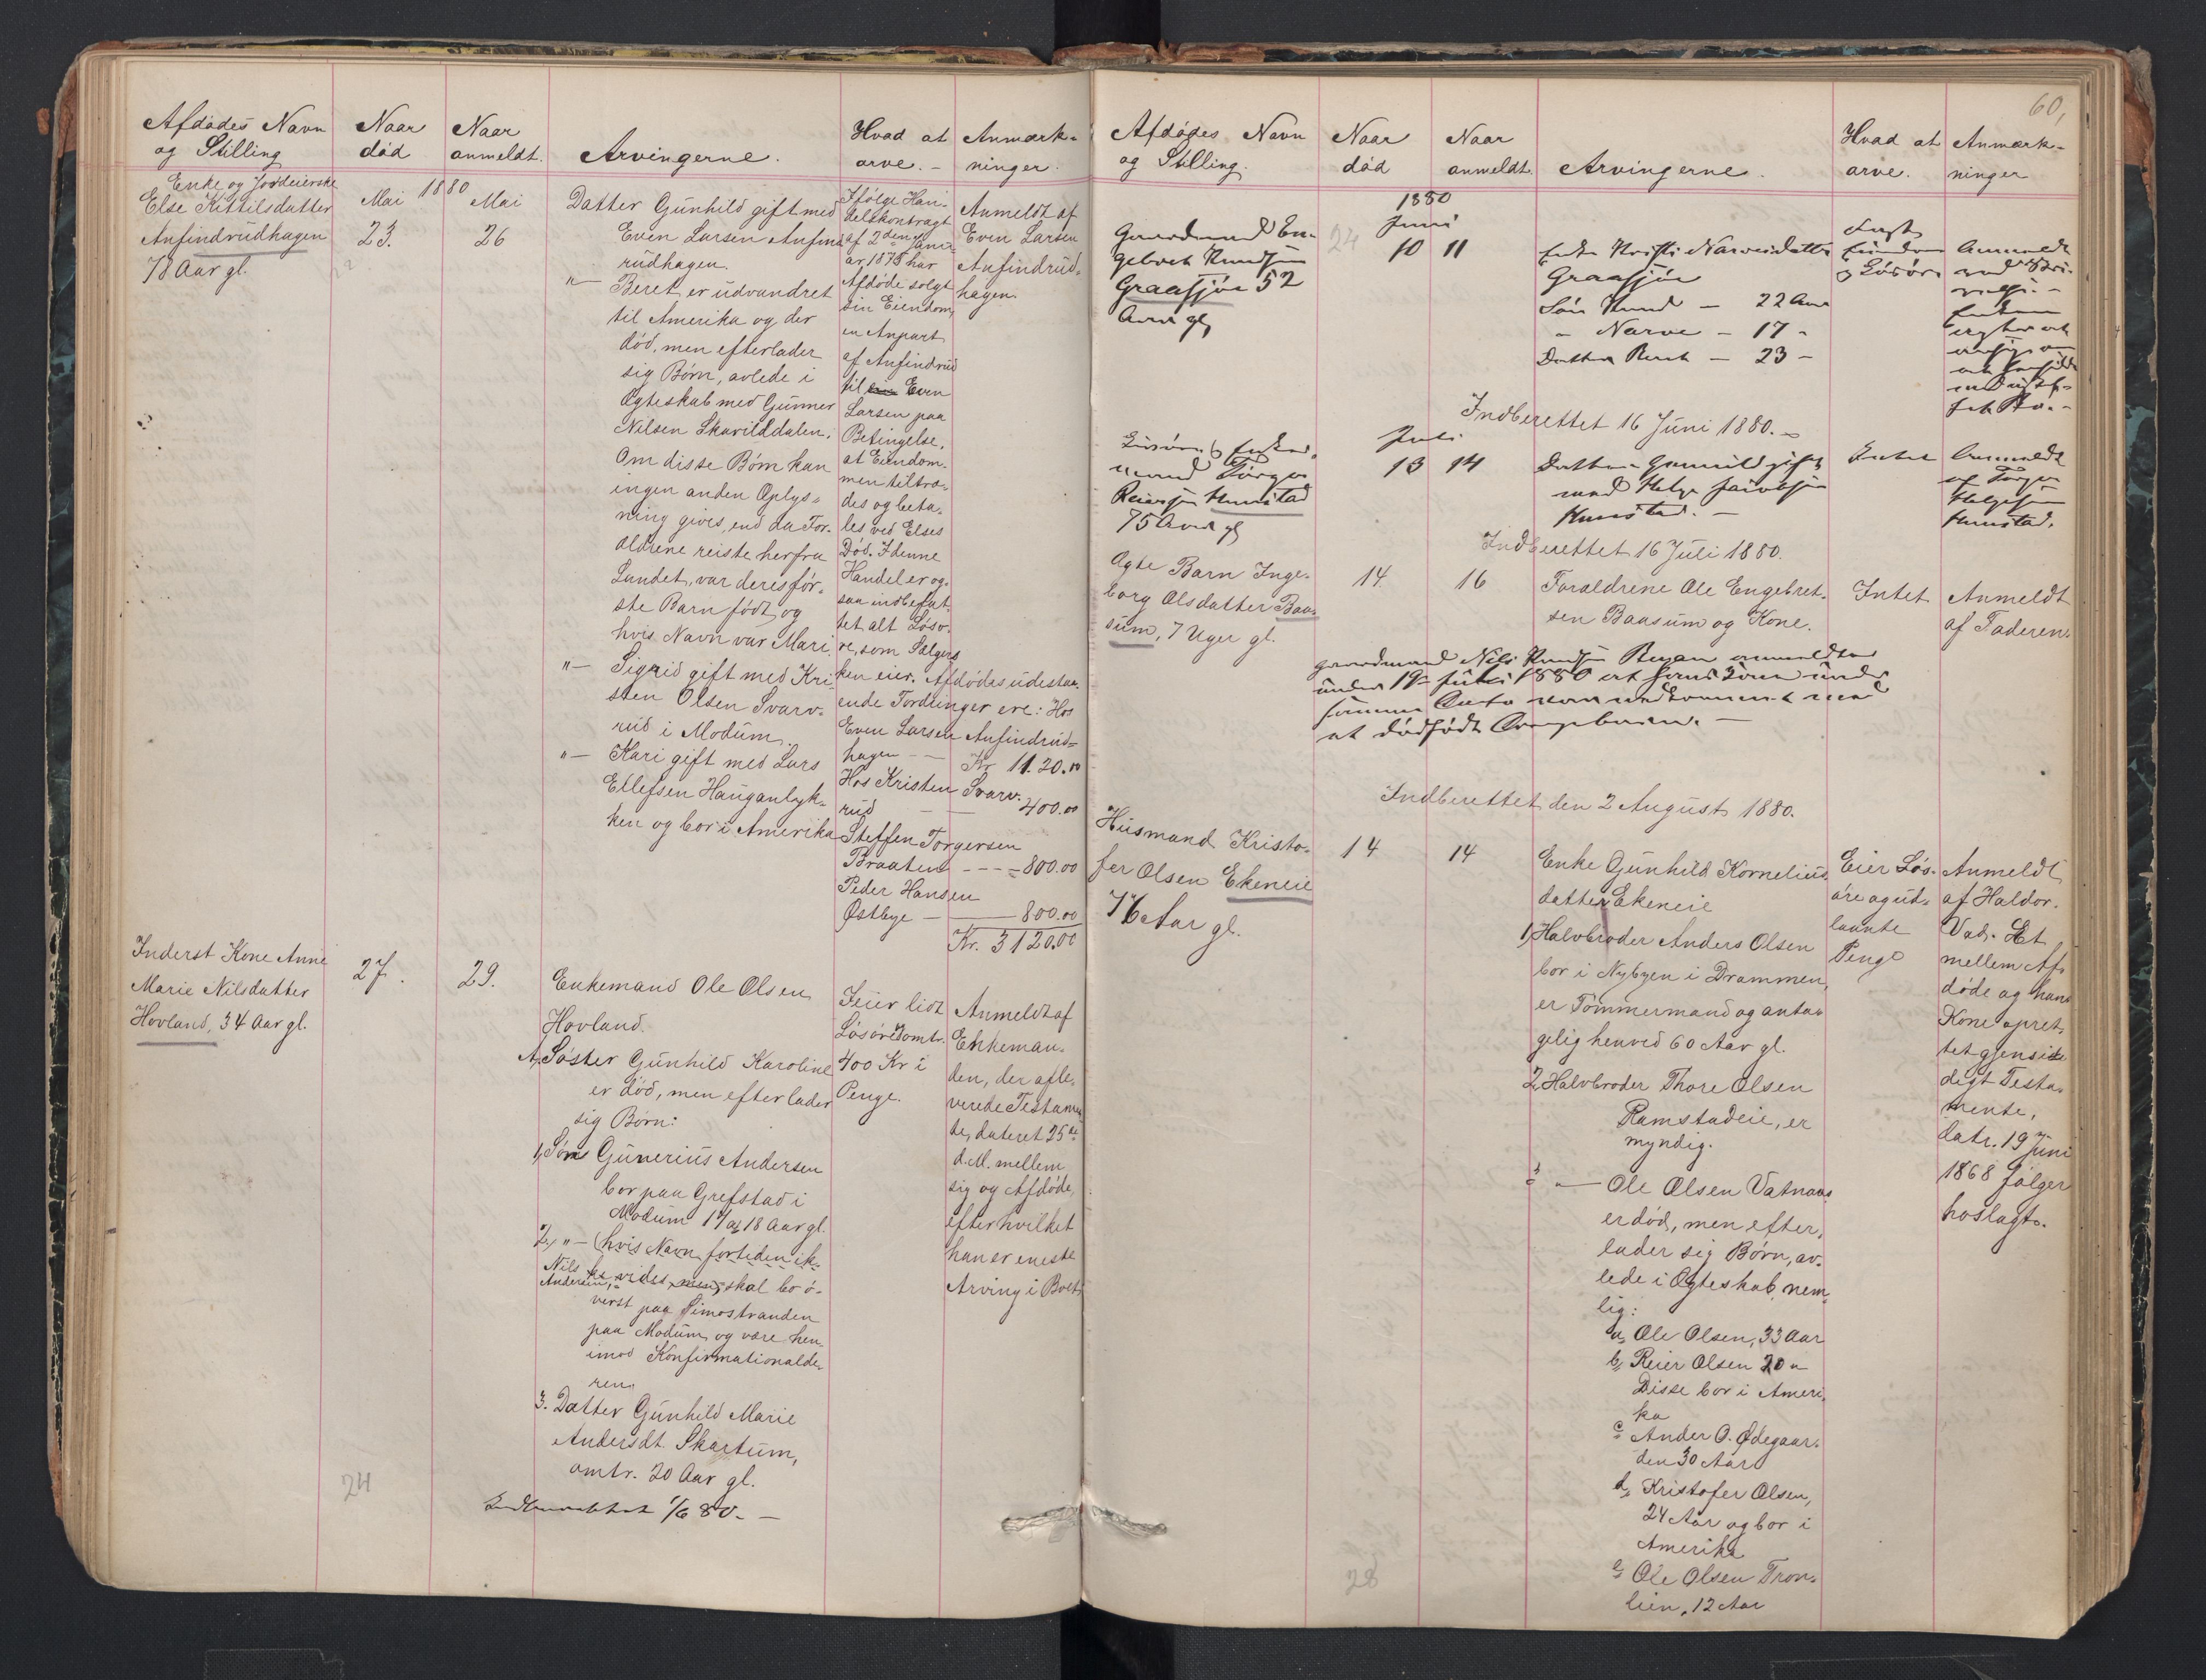 Afdødes Navn
og Stilling
Naar
død
Naar
anmeldt.
Arvingerne.
Hvad at
arve. -
Anmærk-
ninger.
1880
Enke og Jordeierske
Else Kittilsdatter
Anfindrudhagen
78 Aar gl.
Mai
23.
Mai
26
Datter Gunhild gift med
Even Larsen Anfind
rudhagen.
"— Beret er udvandret
til Amerika og der
død, men efterlader
sig Børn, avlede i
Ægteskab med Gunner
Nilsen Skarilddalen.
Om disse Børn kan
ingen anden Oplys-
ning gives, end da For-
ældrene reiste herfra
Landet, var deres før-
ste Barn født og
hvis Navn var Mari.
"— Sigrid gift med Kri-
sten Olsen Svarv-
rud i Modum
"— Kari gift med Lars
Ellefsen Hauganlyk-
ken og bor i Amerika
Ifølge Han-
delskontragt
af 2den Janu-
ar 1878 har
Afdøde solgt
sin Eiendom,
en Anpart
af Anfindrud
til Even
Larsen paa
Betingelse,
at Eiendom-
men tiltræ-
des og beta-
les ved Elses
Død. I denne
Handel er og-
saa indbefat-
tet alt Løsø-
re, som Sælgers
ken eier. Afdødes udestaa-
ende Fordringer ere: Hos
Even Larsen Anfindrud-
hagen — Kr 1120.00
Hos Kristen Svarv-
rud — 400.00
Steffen Torgersen
Braaten - - - - 800.00
Peder Hansen
Østbye — 800.00
Kr. 3120.00
Anmeldt af
Even Larsen
Anfindrud-
hagen.
Inderst Kone Anne
Marie Nilsdatter
Hovland, 34 Aar gl.
27.
29.
Enkemand Ole Olsen
Hovland.
A, Søster Gunhild Karoline
er død, men efterlader
sig Børn:
1, Søn Gunerius Andersen
bor paa Grefstad i
Modum 17 a 18 Aar gl.
2, "— (hvis Navn fortiden ik-
ke vides, men) skal bo ø-
Nils
Andersen,
verst paa Simostranden
paa Modum og være hen-
imod Konfirmationalde-
ren.
3. Datter Gunhild Marie
Andersdt. Skartum,
omtr. 20 Aar gl.
Indberettet 1/6 80. —
Feier lidt
Løsøre omtr.
400 Kr i
Penge.
Anmeldt af
Enkeman-
den, der afle-
verede Testamen
te, dateret 25de
d.M. mellem
sig og Afdøde,
efter hvilket
han er eneste
Arving i Boet.
24
60,
Afdødes Navn
og Stilling.
Naar
død
Naar
anmeldt.
Arvingerne.
Hvad at
arve.
Anmærk-
ninger
1880
Juni
Gaardmand En-
gebret Knudsen
Graasjøe 52
Aar gl,
24
10
11
Enke Kristi Narvesdatter
Graasjøe
Søn Knud — 22 Aar
" Narve — 17 "
Datter Berit — 23 —
Fast
Eiendom
og Løsøre
Anmeldt
ved
Enken
agter at
Indberettet 16 Juni 1880. —
Juli
mand Torger
Reiersen Kunstad
75 Aar gl
13
14
Datter Gunnild gift
med Helge
Kunstad. —
Intet
Anmeldt
af Torger
Helgesen
Kunstad.
Indberettet 16 Juli 1880.
Ægte Barn Inge-
borg Olsdatter Baa-
sum, 7 Uger gl.
14.
16
Forældrene Ole Engebret-
sen Baasum og Kone.
Intet
Anmeldt
af Faderen.
Gaardmand Nils Knudsen anmeldte
under 19de Juli 1880 at hans Kone under
samme Dato var nedkommet med
et dødfødt Drengebarn. —
Indberettet den 2 August 1880.
Husmand Kristo-
fer Olsen Ekeneie
76 Aar gl.
14
14
Enke Gunhild Kornelius
datter Ekeneie
1, Halvbroder Anders Olsen
bor i Nybyen i Drammen,
er Tømmermand og anta-
gelig henved 60 Aar gl.
2, Halvbroder Thore Olsen
Ramstadeie, er
myndig.
3 "— Ole Olsen Vatnaas
er død, men efter-
lader sig Børn, av-
lede i Ægteskab, nem-
lig:
a, Ole Olsen, 33 Aar
b, Reier Olsen 20 "
Disse bor i Ameri-
ka
c, Ander O. Ødegaar-
den 30 Aar
d, Kristofer Olsen,
24 Aar og bor i
Amerika
e, Ole Olsen Tron-
lien, 12 Aar
Eier Løs-
øre og ud-
laante
Penge
Anmeldt
af Haldor
Vad. Et
mellem Af-
døde og hans
Kone opret-
tet gjensi-
digt Testa-
mente,
datr. 19 Juni
1868 følger
hoslagt.
28